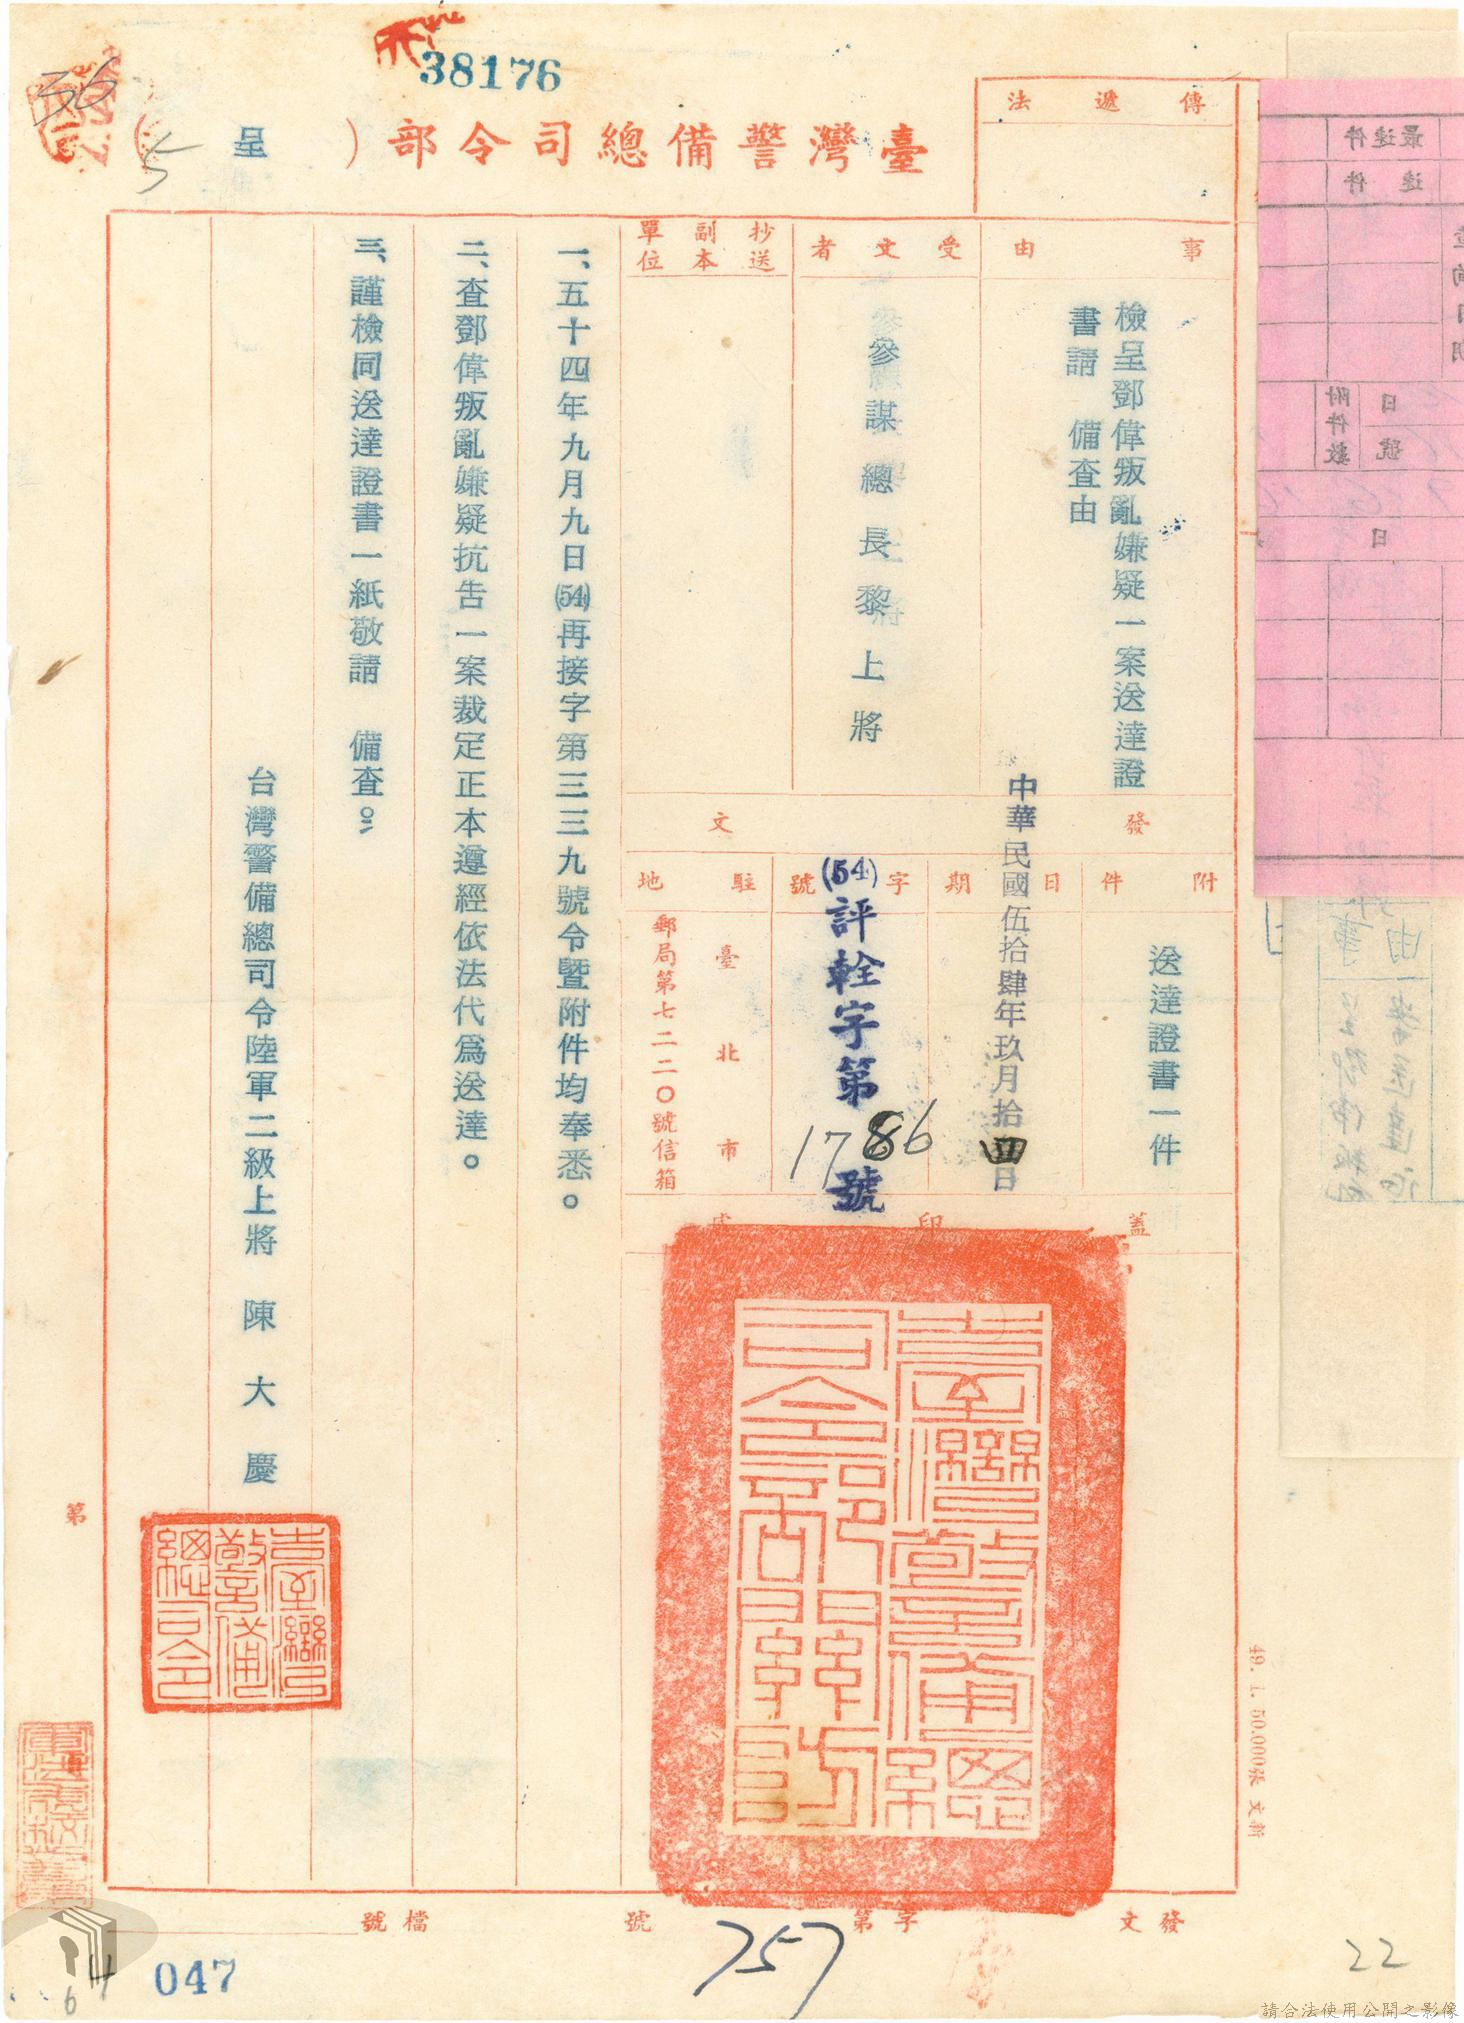 38176
臺灣警備總司令部（呈）
36
5
傳遞法
事由
檢呈鄧偉叛亂嫌疑一案送達證
書請　備查由
受文者
參謀總長黎上將
抄送副本單位
發文
附件
送達證書一件
日期
中華民國伍拾肆年玖月拾四日
字號
(54)評銓字第1786號
駐地
臺北市
郵局第七二二〇號信箱
蓋印
一、五十四年九月九日(54)再接字第三三九號令暨附件均奉悉。
二、查鄧偉叛亂嫌疑抗告一案裁定正本遵經依法代為送達。
三、謹檢同送達證書一紙敬請　備查。
台灣警備總司令陸軍二級上將　陳大慶
臺灣警備總司令部
臺灣警備總司令
第
49. 1. 50.000張 文新
發文　字第　號
檔號
757
047
22
最速件
速件
附件數
日
號
日
事由
請合法使用公開之影像